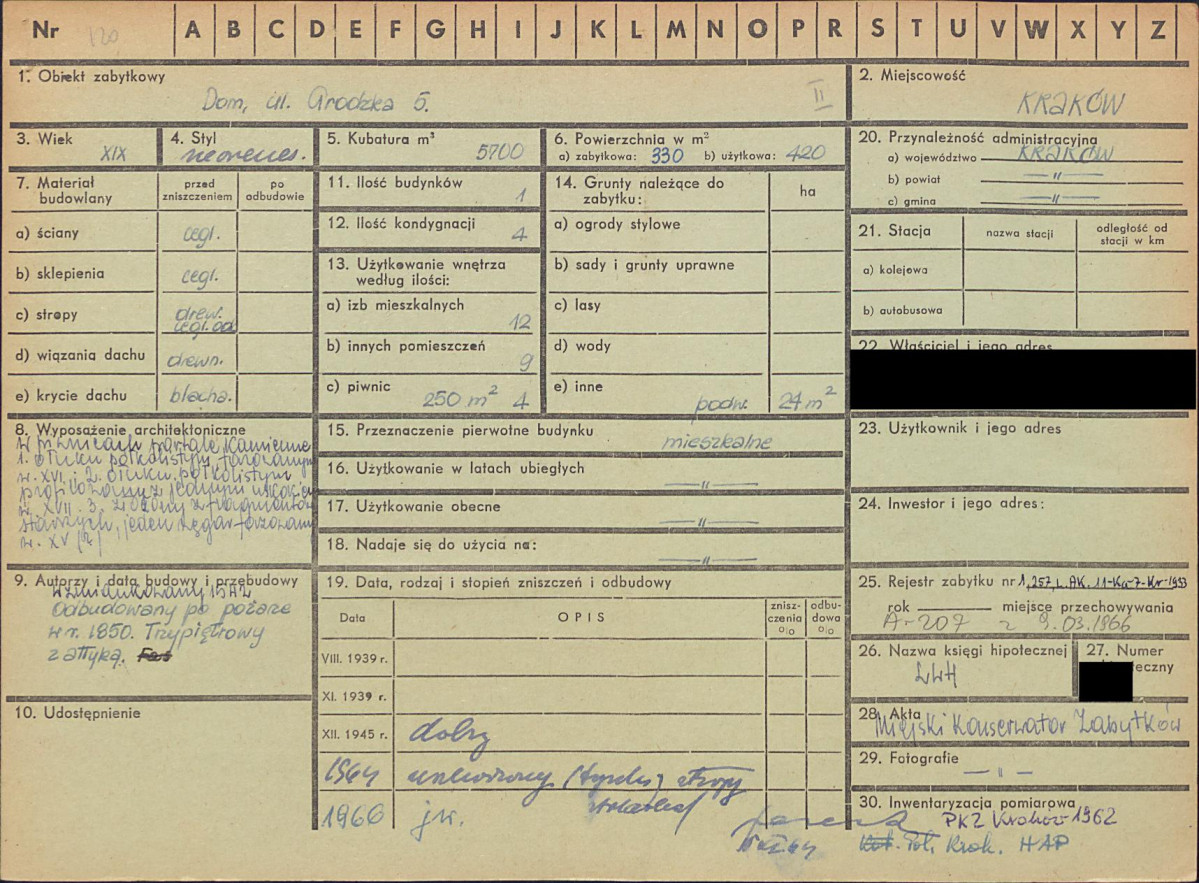 Nr 120 A B C D E F G H I J K L M N O P R S T U V W X Y Z
1. Obiekt zabytkowy
Dom, ul. Grodzka 5.
II
2. Miejscowość
KRAKÓW
3. Wiek
XIX
4. Styl
neorenes.
5. Kubatura m³
5700
6. Powierzchnia w m²
a) zabytkowa: 330 b) użytkowa: 420
20. Przynależność administracyjna
a) województwo KRAKÓW
b) powiat —"—
c) gmina —"—
7. Materiał budowlany
przed zniszczeniem
po odbudowie
a) ściany cegl.
b) sklepienia cegl.
c) stropy drew.
cegl. od
d) wiązania dachu drewn.
e) krycie dachu blacha.
11. Ilość budynków
1
12. Ilość kondygnacji
4
13. Użytkowanie wnętrza
według ilości:
a) izb mieszkalnych
12
b) innych pomieszczeń
9
c) piwnic
250 m² 4
14. Grunty należące do
zabytku:
ha
a) ogrody stylowe
b) sady i grunty uprawne
c) lasy
d) wody
e) inne
podw. 24 m²
21. Stacja
nazwa stacji
odległość od
stacji w km
a) kolejowa
b) autobusowa
22. Właściciel i jego adres
8. Wyposażenie architektoniczne
w piwnicach portale kamienne
1. o łuku półkolistym fazowanym
w. XVI. 2. o łuku półkolistym
profilowany z jednym uskokiem
w. XVII. 3. złożony z fragmentów
starszych, jeden węgar fazowany
w. XV (?)
15. Przeznaczenie pierwotne budynku
mieszkalne
16. Użytkowanie w latach ubiegłych
—"—
17. Użytkowanie obecne
—"—
18. Nadaje się do użycia na:
—"—
23. Użytkownik i jego adres
24. Inwestor i jego adres:
9. Autorzy i data budowy i przebudowy
wzmiankowany 1542
Odbudowany po pożarze
w r. 1850. Trzypiętrowy
z attyką.
10. Udostępnienie
19. Data, rodzaj i stopień zniszczeń i odbudowy
Data
OPIS
znisz-
czenia
o/o
odbu-
dowa
o/o
VIII. 1939 r.
XI. 1939 r.
XII. 1945 r. dobry
1964 stropy
1960 jw.
25. Rejestr zabytku nr
rok miejsce przechowywania
A-207 z 9.03.1966
26. Nazwa księgi hipotecznej
LWH
27. Numer
28. Akta
Miejski Konserwator Zabytków
29. Fotografie
—"—
30. Inwentaryzacja pomiarowa
PKZ Kraków 1962
Pol. Krak. HAP